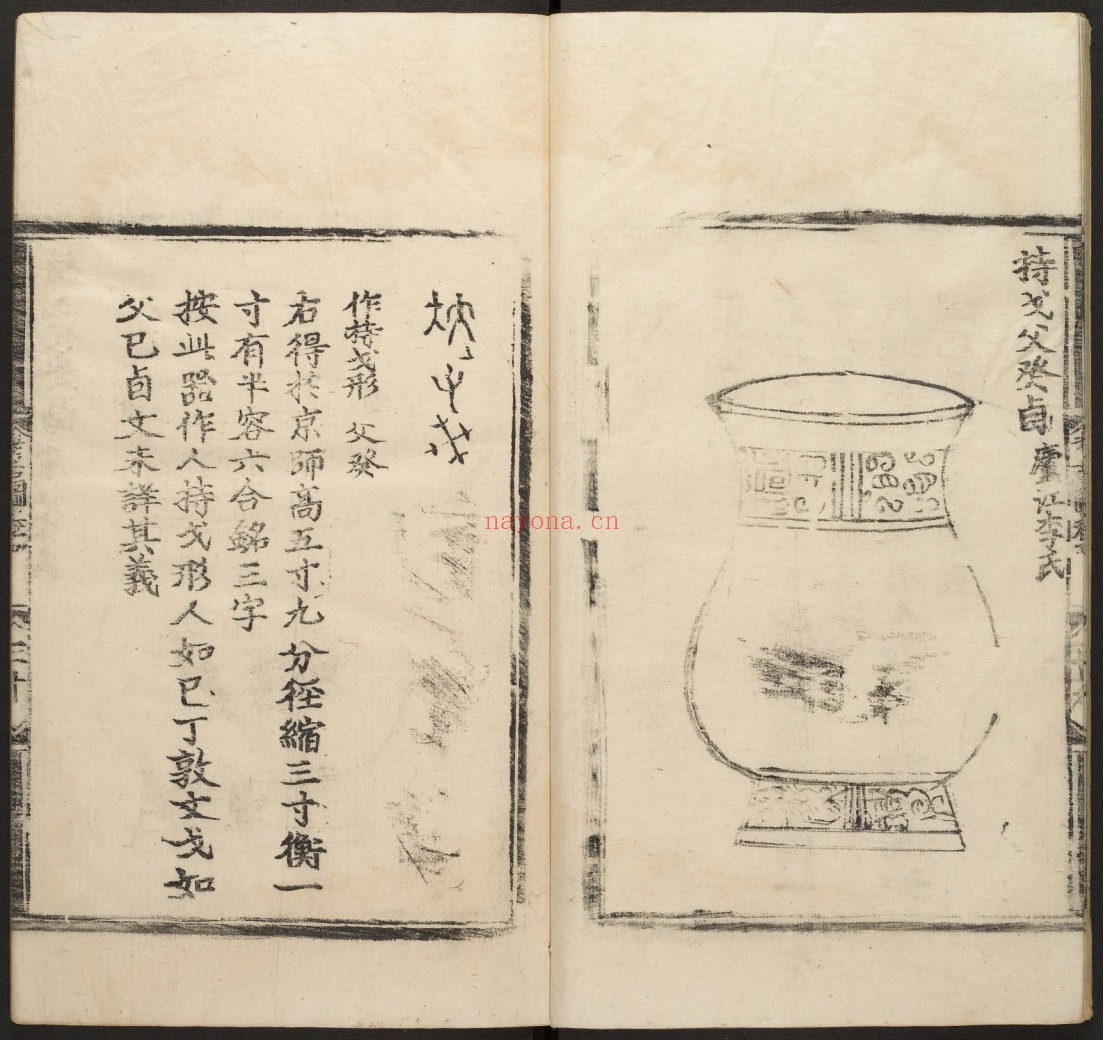 持戈父癸卣 廬江李氏
作持戈形 父癸
右得於京師高五寸九分徑縮三寸衡一
寸有半容六合銘三字
按此器作人持戈形人如巳丁敦文戈如
父巳卣文未詳其義
nayona.cn